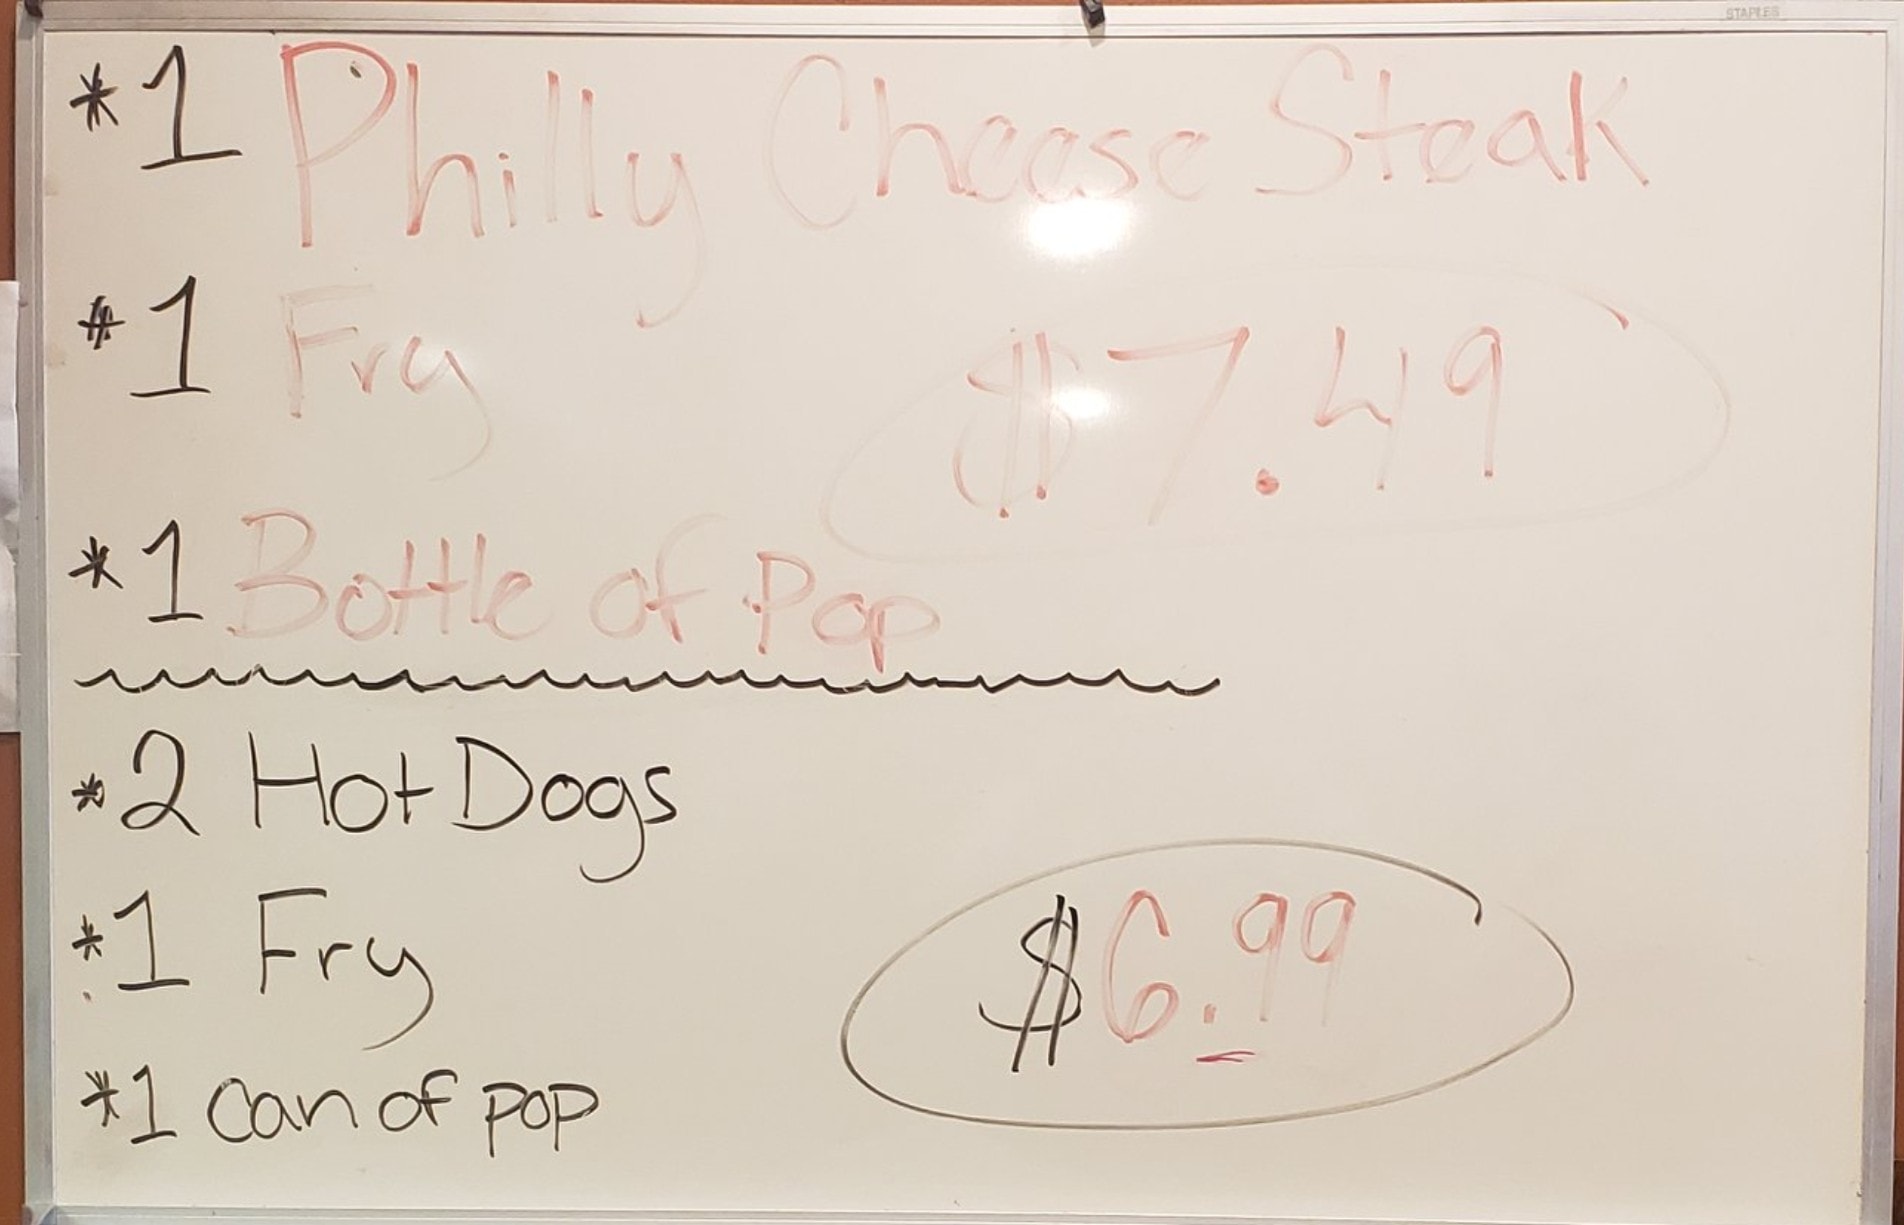 STAPLES
*1 Philly Cheese Steak
*1 Fry
$7.49
*1 Bottle of Pop
*2 Hot Dogs
*1 Fry
$6.99
*1 can of pop